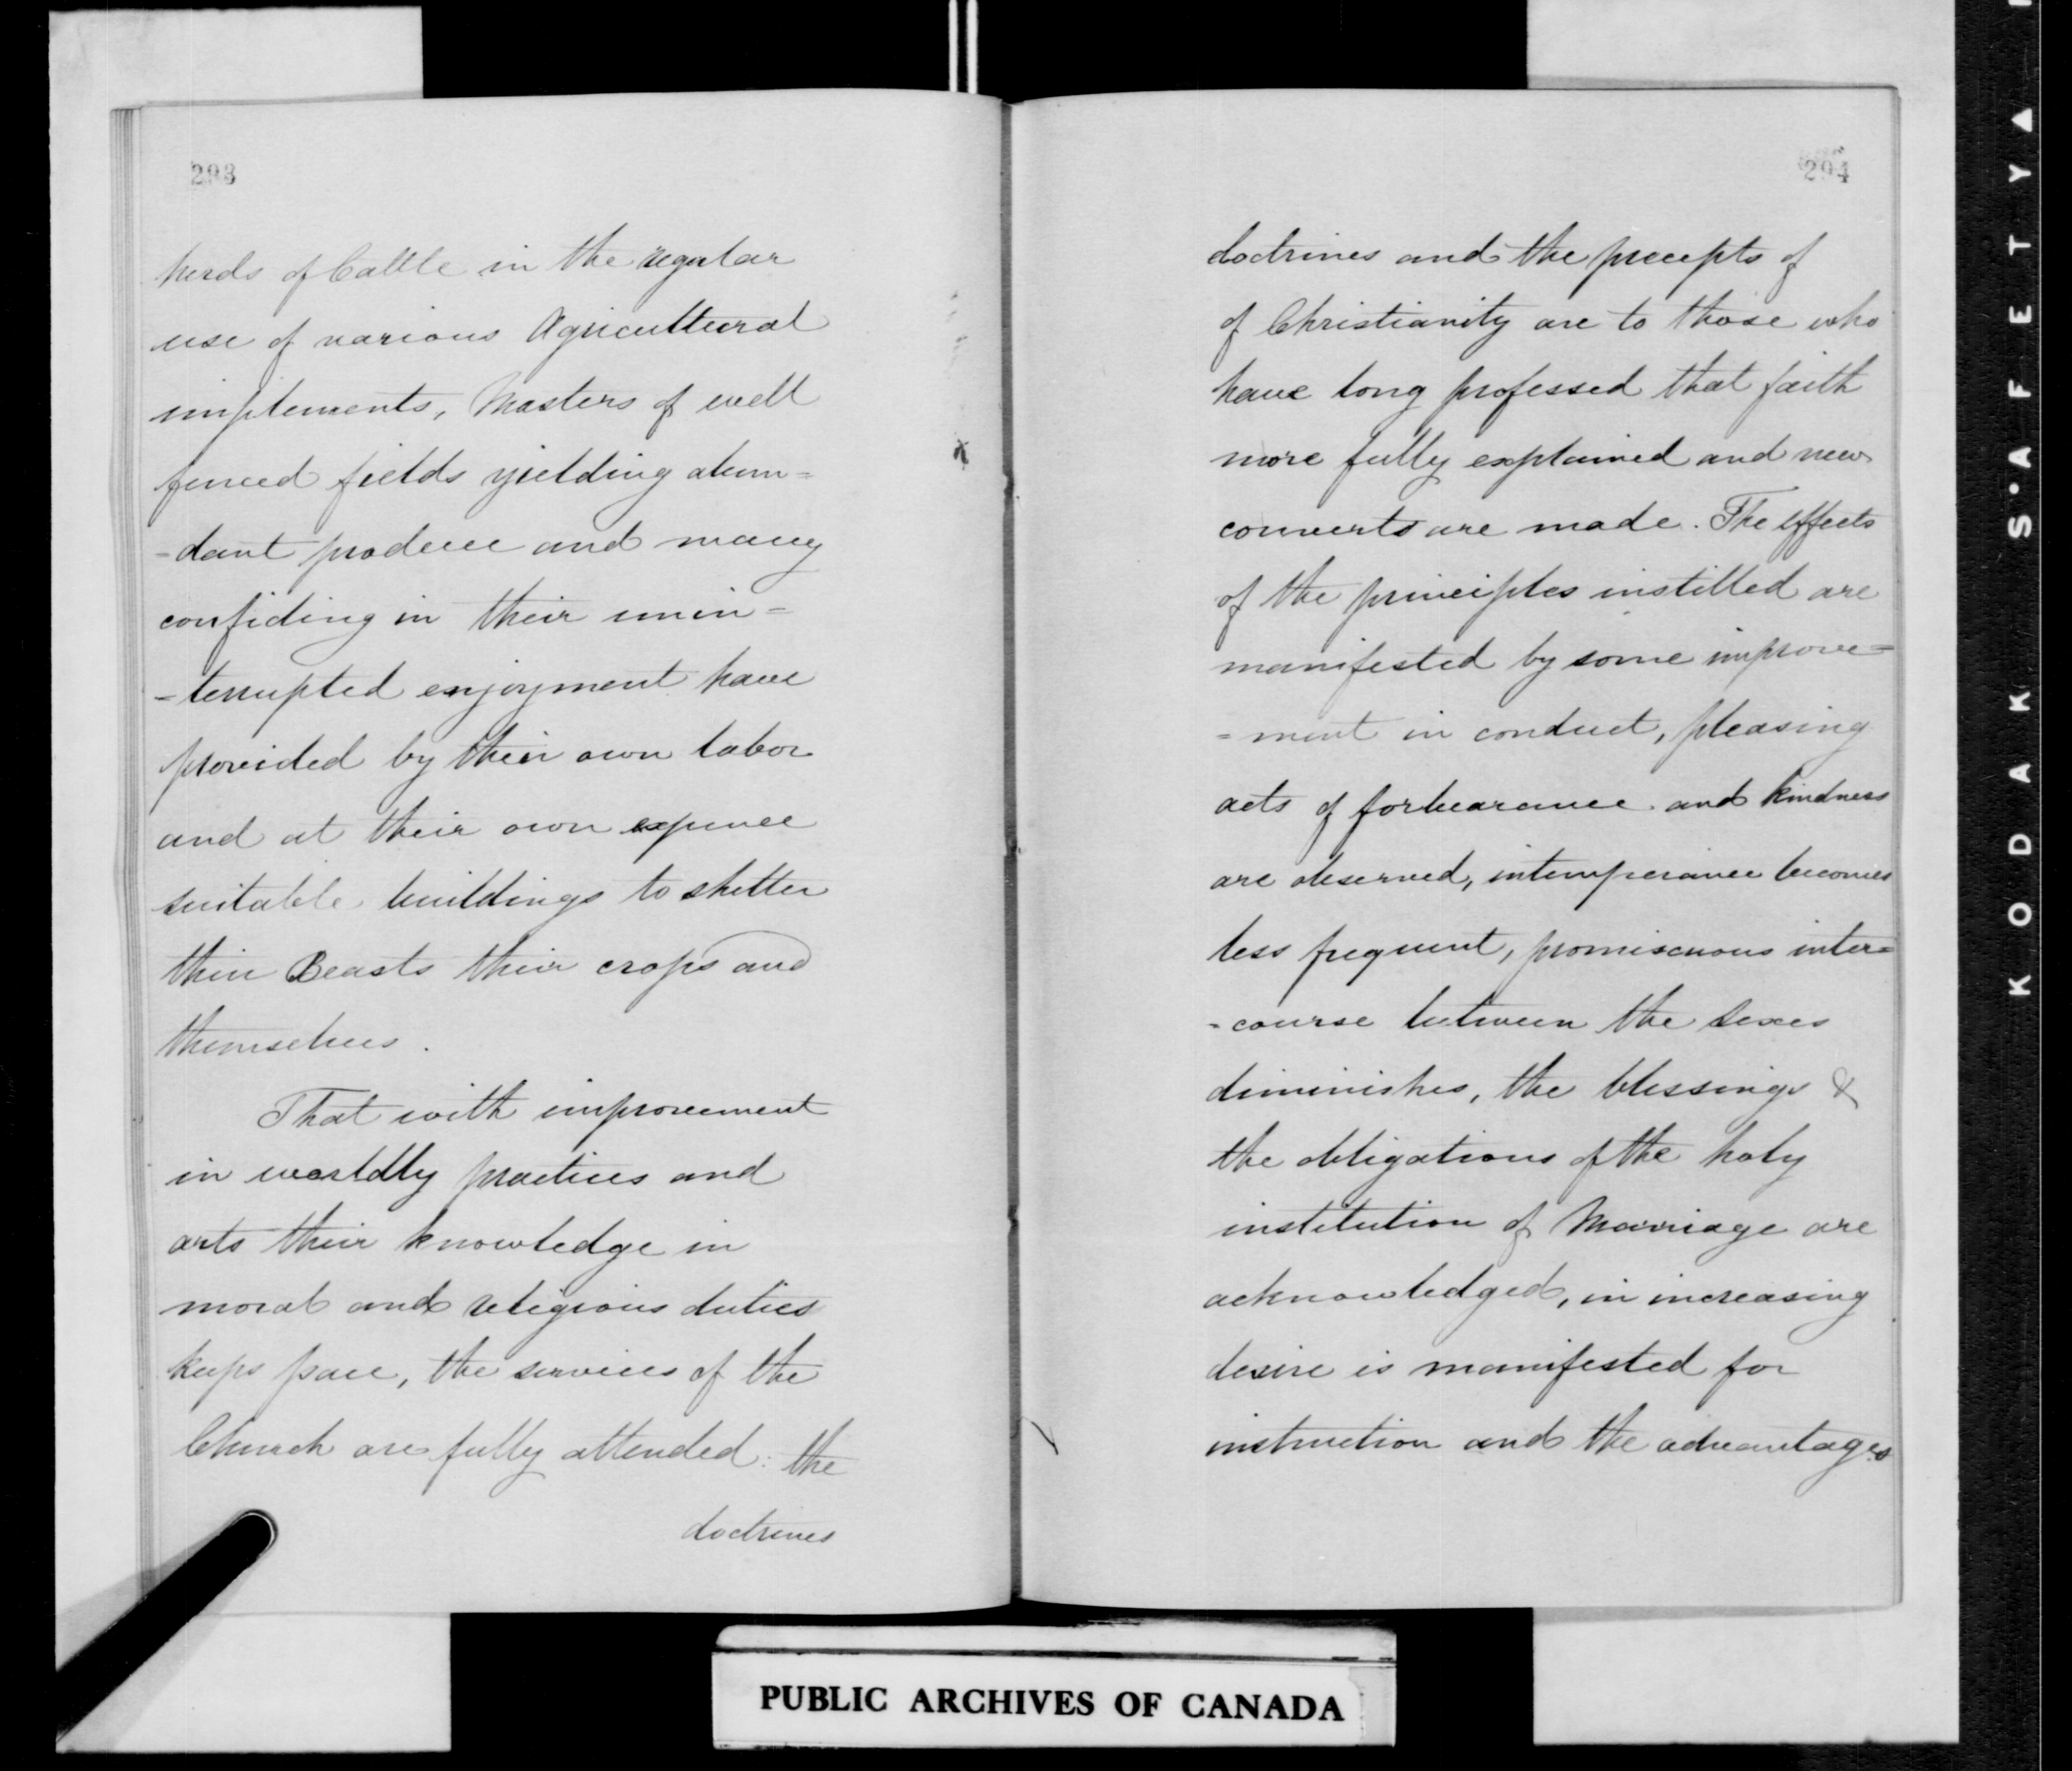 293
herds of Cattle in the regular
use of various Agricultural
implements, Masters of well
fenced fields yielding abun=
=dant produce and many
confiding in their unin=
=terrupted enjoyment have
provided by their own labor
and at their own expence
suitable buildings to shelter
their Beasts their crops and
themselves.
That with improvement
in worldly practices and
arts their knowledge in
moral and religious duties
keeps pace, the services of the
Church are fully attended: the
doctrines
294
doctrines and the precepts of
of Christianity are to those who
have long professed that faith
more fully explained and new
converts are made. The effects
of the principles instilled are
manifested by some improve=
=ment in conduct, pleasing
acts of forbearance and kindness
are observed, intemperance becomes
less frequent, promiscuous inter=
=course between the sexes
diminishes, the blessings &
the obligations of the holy
institution of Marriage are
acknowledged, in increasing
desire is manifested for
instruction and the advantages
PUBLIC ARCHIVES OF CANADA
KODAK S·AFETY▲